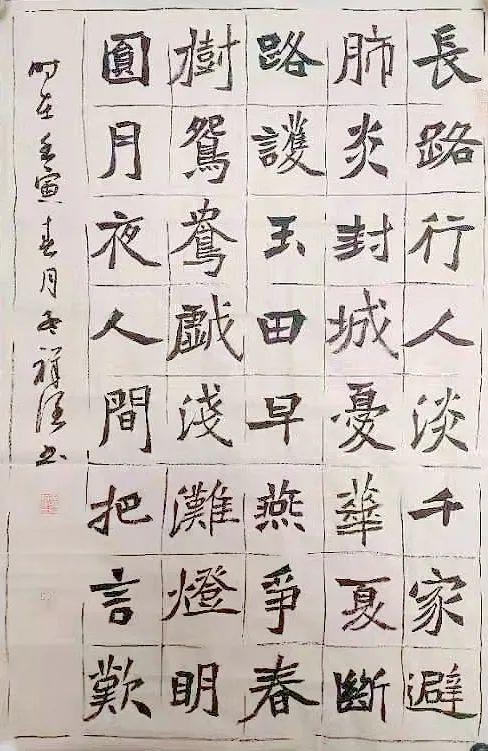 長路行人淡千家避
肺炎封城憂華夏斷
路護玉田早燕爭春
樹鴛鴦戱淺灘燈明
圓月夜人間把言歎
时在壬寅春月祥书